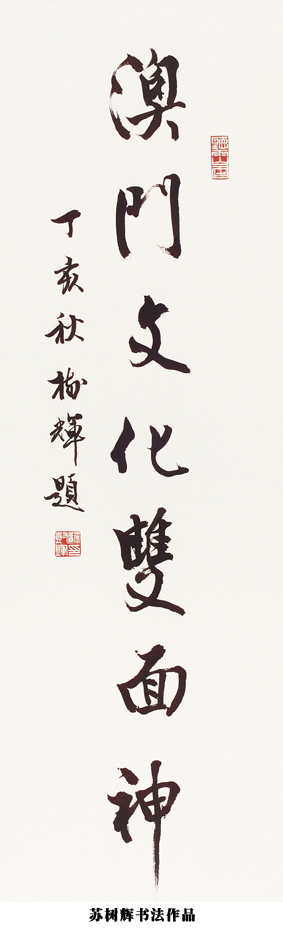 澳門文化雙面神
丁亥秋樹輝題
苏树辉书法作品